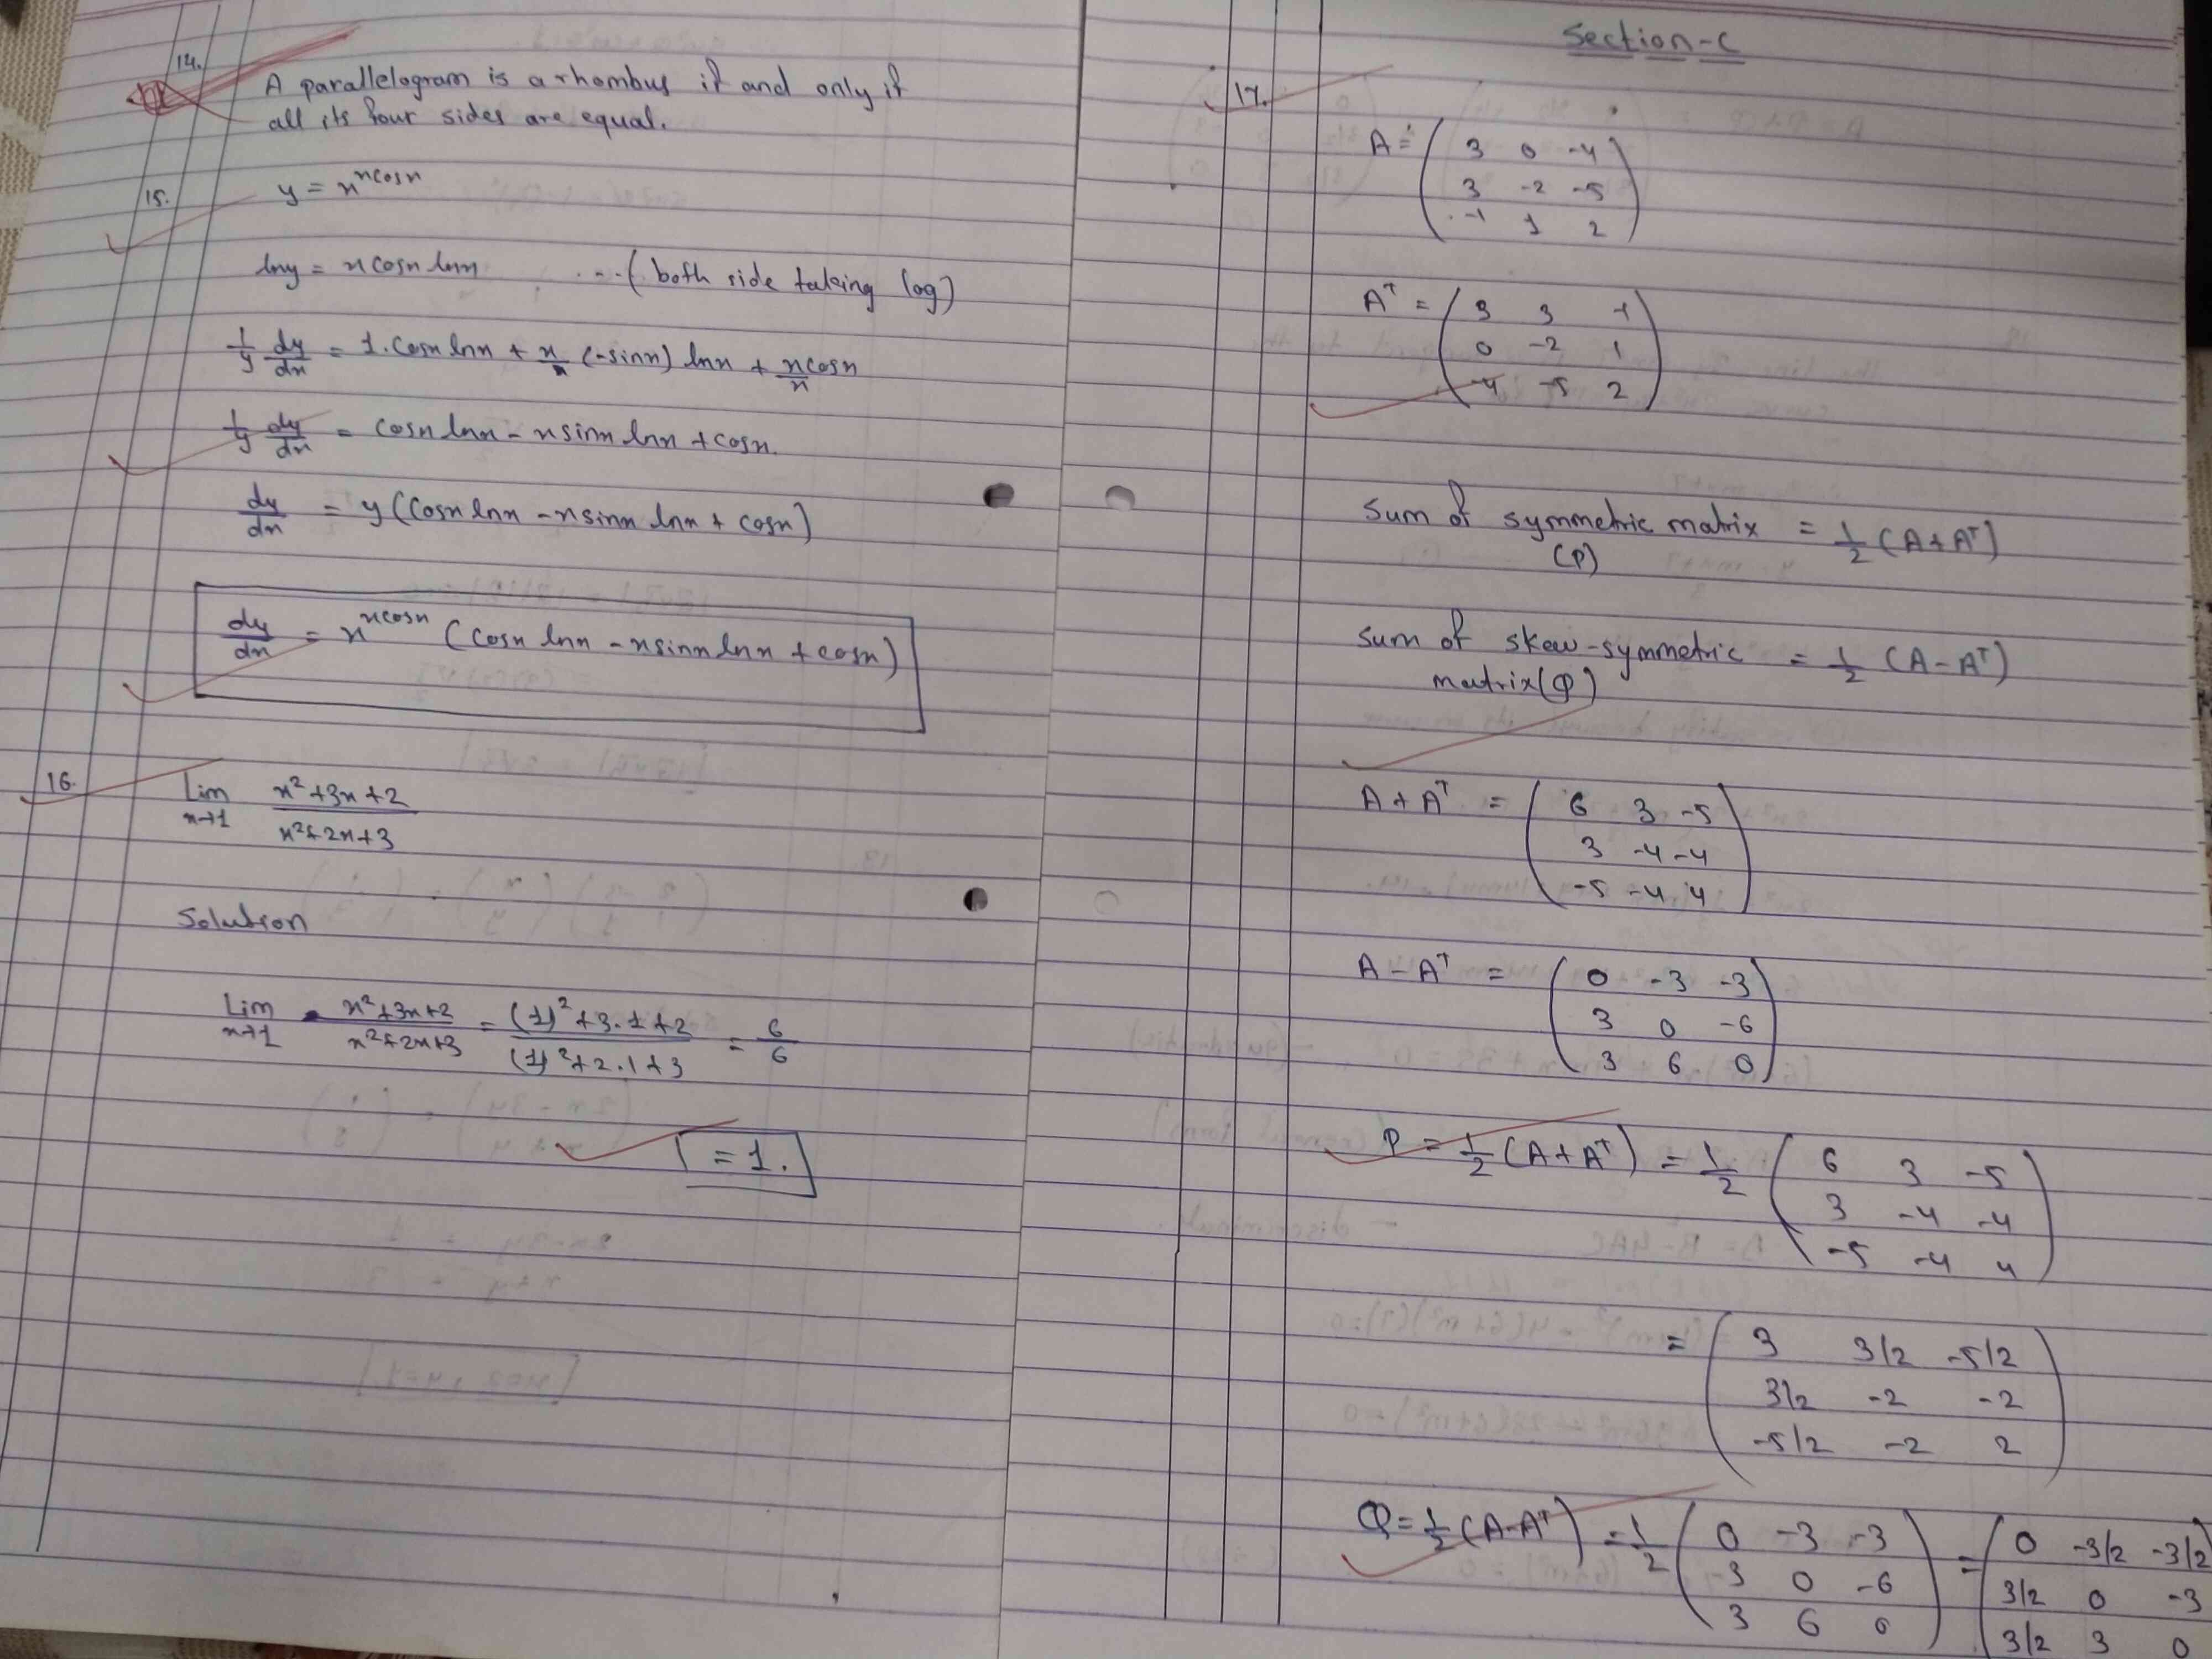 14.
A parallelogram is a rhombus if and only if
all its four sides are equal.
15.
y = x^(xcosx)
lny = xcosx lnx ...(both side taking log)
1/y dy/dx = 1.cosx lnx + x (-sinx) lnx + xcosx/x
1/y dy/dx = cosx lnx - xsinx lnx + cosx.
dy/dx = y(cosx lnx - xsinx lnx + cosx)
dy/dx = x^(xcosx) (cosx lnx - xsinx lnx + cosx)
16.
Lim x→1 (x²+3x+2)/(x²+2x+3)
Solution
Lim x→1 (x²+3x+2)/(x²+2x+3) = ((1)²+3.1+2)/((1)²+2.1+3) = 6/6
= 1.
Section-C
17.
A = ( 3 0 -4
3 -2 -5
-1 1 2 )
Aᵀ = ( 3 3 -1
0 -2 1
-4 -5 2 )
Sum of symmetric matrix = 1/2 (A+Aᵀ)
(P)
Sum of skew-symmetric = 1/2 (A-Aᵀ)
matrix(Q)
A+Aᵀ = ( 6 3 -5
3 -4 -4
-5 -4 4 )
A-Aᵀ = ( 0 -3 -3
3 0 -6
3 6 0 )
P = 1/2 (A+Aᵀ) = 1/2 ( 6 3 -5
3 -4 -4
-5 -4 4 )
= ( 3 3/2 -5/2
3/2 -2 -2
-5/2 -2 2 )
Q = 1/2 (A-Aᵀ) = 1/2 ( 0 -3 -3 ) = ( 0 -3/2 -3/2 )
3 0 -6 3/2 0 -3
3 6 0 3/2 3 0